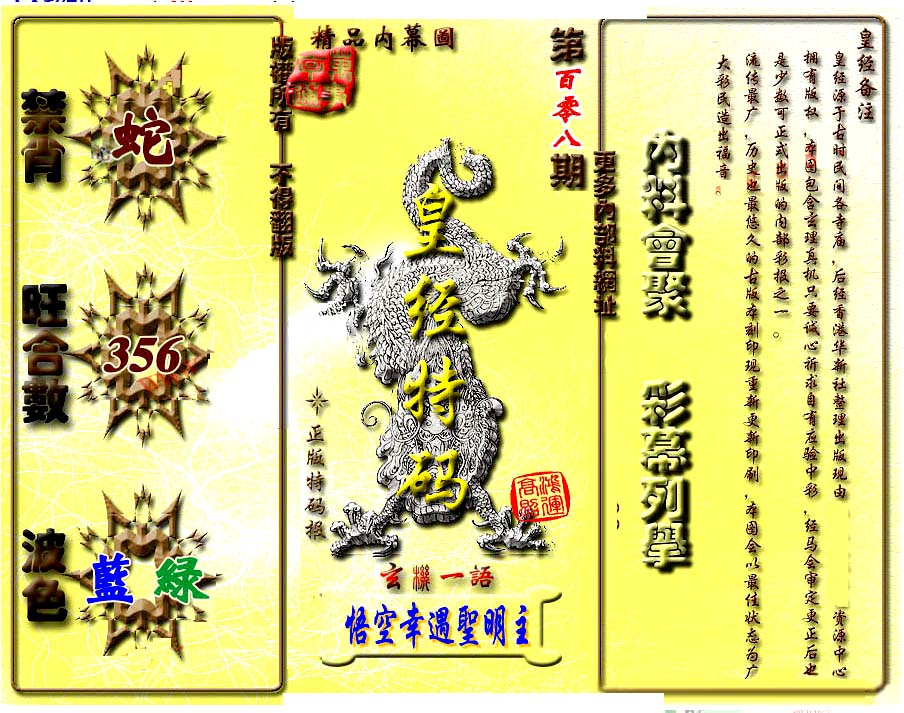 皇经备注
皇经源于古时民间各寺庙，后经香港华新社整理出版现由 资源中心
拥有版权，本图包含玄理真机只要诚心祈求自有应验中彩，经马会审定更正后也
是少数可正式出版的内部彩报之一。
流传最广，历史也最悠久的古版本刻印现重新更新印刷，本图会以最佳状态为广
大彩民造出福音
內料會聚 彩幕列舉
更多內部料網址
第百零八期
精品内幕圖
皇经特码
正版特码报
鴻運高照
玄機一語
悟空幸遇聖明主
版權所有 不得翻版
禁肖
蛇
旺合數
356
波色
藍 綠